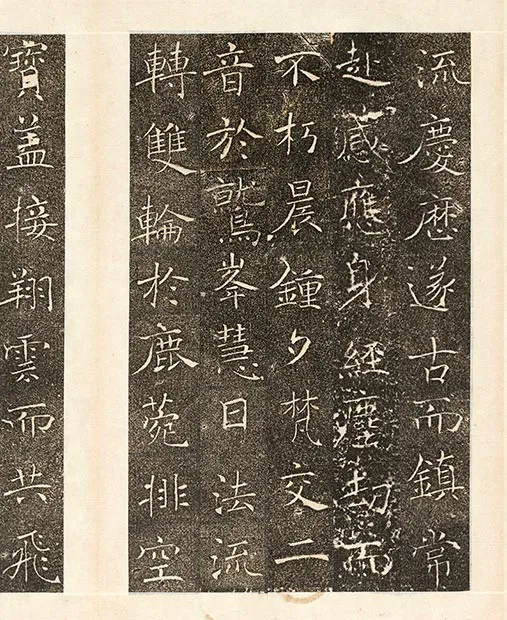 流慶歴遂古而鎮常
赴感應身經塵劫而
不朽晨鍾夕梵交二
音於鷲峯慧日法流
轉雙輪於鹿菀排空
寶蓋接翔雲而共飛